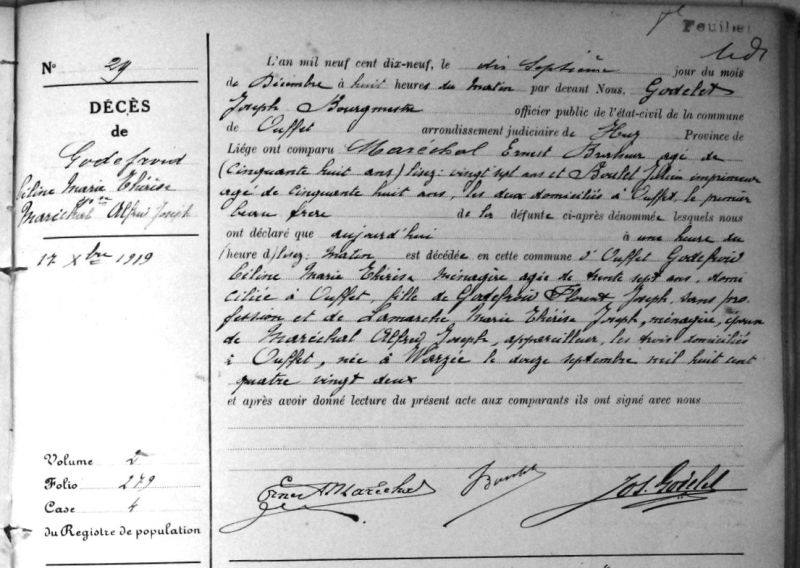 Feuillet
N° 29
DÉCÈS
de
Godefroid
Céline Marie Thérèse
Maréchal Alfred Joseph
17 Xbre 1919
Volume 2
Folio 279
Case 4
du Registre de population
L'an mil neuf cent dix-neuf, le dix septième jour du mois
de Décembre à huit heures du Matin par devant Nous, Godelet
Joseph Bourgmestre officier public de l'état-civil de la commune
de Ouffet arrondissement judiciaire de Huy Province de
Liége ont comparu Maréchal Ernest agé de
(Cinquante huit ans) lisez: vingt sept ans et Boulet imprimeur
agé de cinquante huit ans, les deux domiciliés à Ouffet, le premier
beau frère de la défunte ci-après dénommée lesquels nous
ont déclaré que aujourd'hui à une heure du
(heure d) lisez: Matin est décédée en cette commune d'Ouffet Godefroid
Céline Marie Thérèse Ménagère agée de trente sept ans, domi
ciliée à Ouffet, fille de Godefroid Florent Joseph, sans pro
fession et de Lamarche Marie Thérèse Joseph, ménagère, épouse
de Maréchal Alfred Joseph, appareilleur, les trois domiciliés
à Ouffet, née à Warzée le douze septembre mil huit cent
quatre vingt deux
et après avoir donné lecture du présent acte aux comparants ils ont signé avec nous
Ernest Maréchal Boulet Jos. Godelet